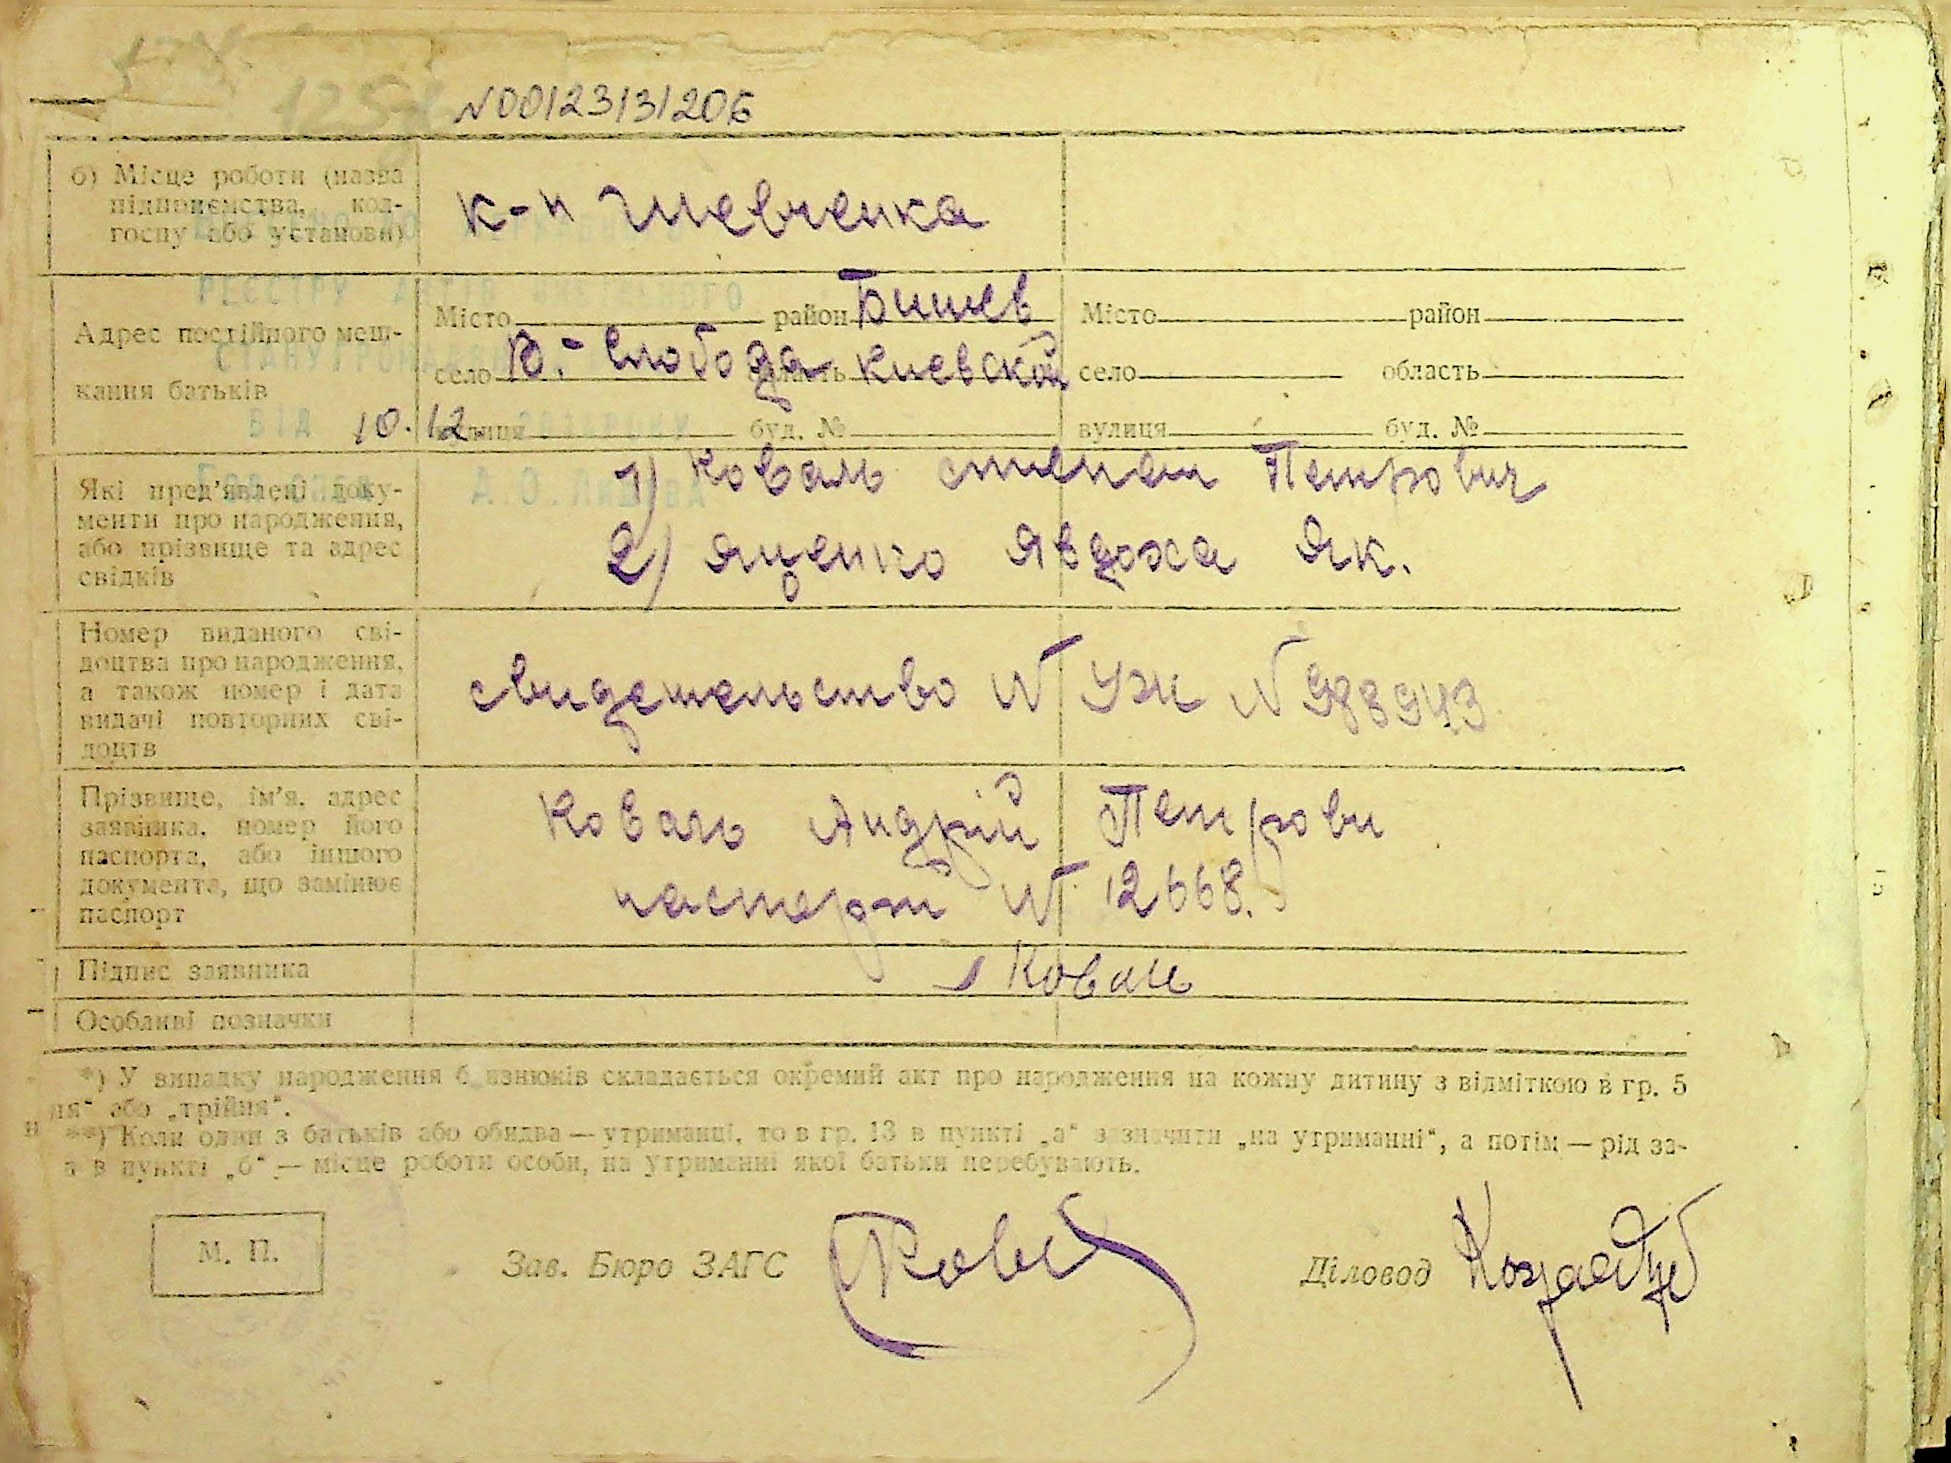 N00123131206
б) Місце роботи (назва
підприємства, кол-
госпу або установи)
к-п Шевченка
РЕЄСТРУ АКТІВ
Адрес постійного меш-
кання батьків
Місто район Бишев
село Ю.-Слобода область Киевской
вулиця буд. №
Місто район
село область
вулиця буд. №
ВІД 10.12.
Які пред'явлені доку-
менти про народження,
або прізвище та адрес
свідків
1) Коваль степан Петрович
2) Яценко Явдоха Як.
Номер виданого сві-
доцтва про народження,
а також номер і дата
видачі повторних сві-
доцтв
свидетельство N УЖ N 988943
Прізвище, ім'я, адрес
заявника, номер його
паспорта, або іншого
документа, що замінює
паспорт
Коваль Андрій Петрови
паспорт N 12668.
Підпис заявника
Коваль
Особливі позначки
*) У випадку народження близнюків складається окремий акт про народження на кожну дитину з відміткою в гр. 5
ня“ або „трійня“.
**) Коли один з батьків або обидва — утриманці, то в гр. 13 в пункті „а“ зазначити „на утриманні“, а потім — рід за-
а в пункті „б“ — місце роботи особи, на утриманні якої батьки перебувають.
М. П.
Зав. Бюро ЗАГС
Діловод